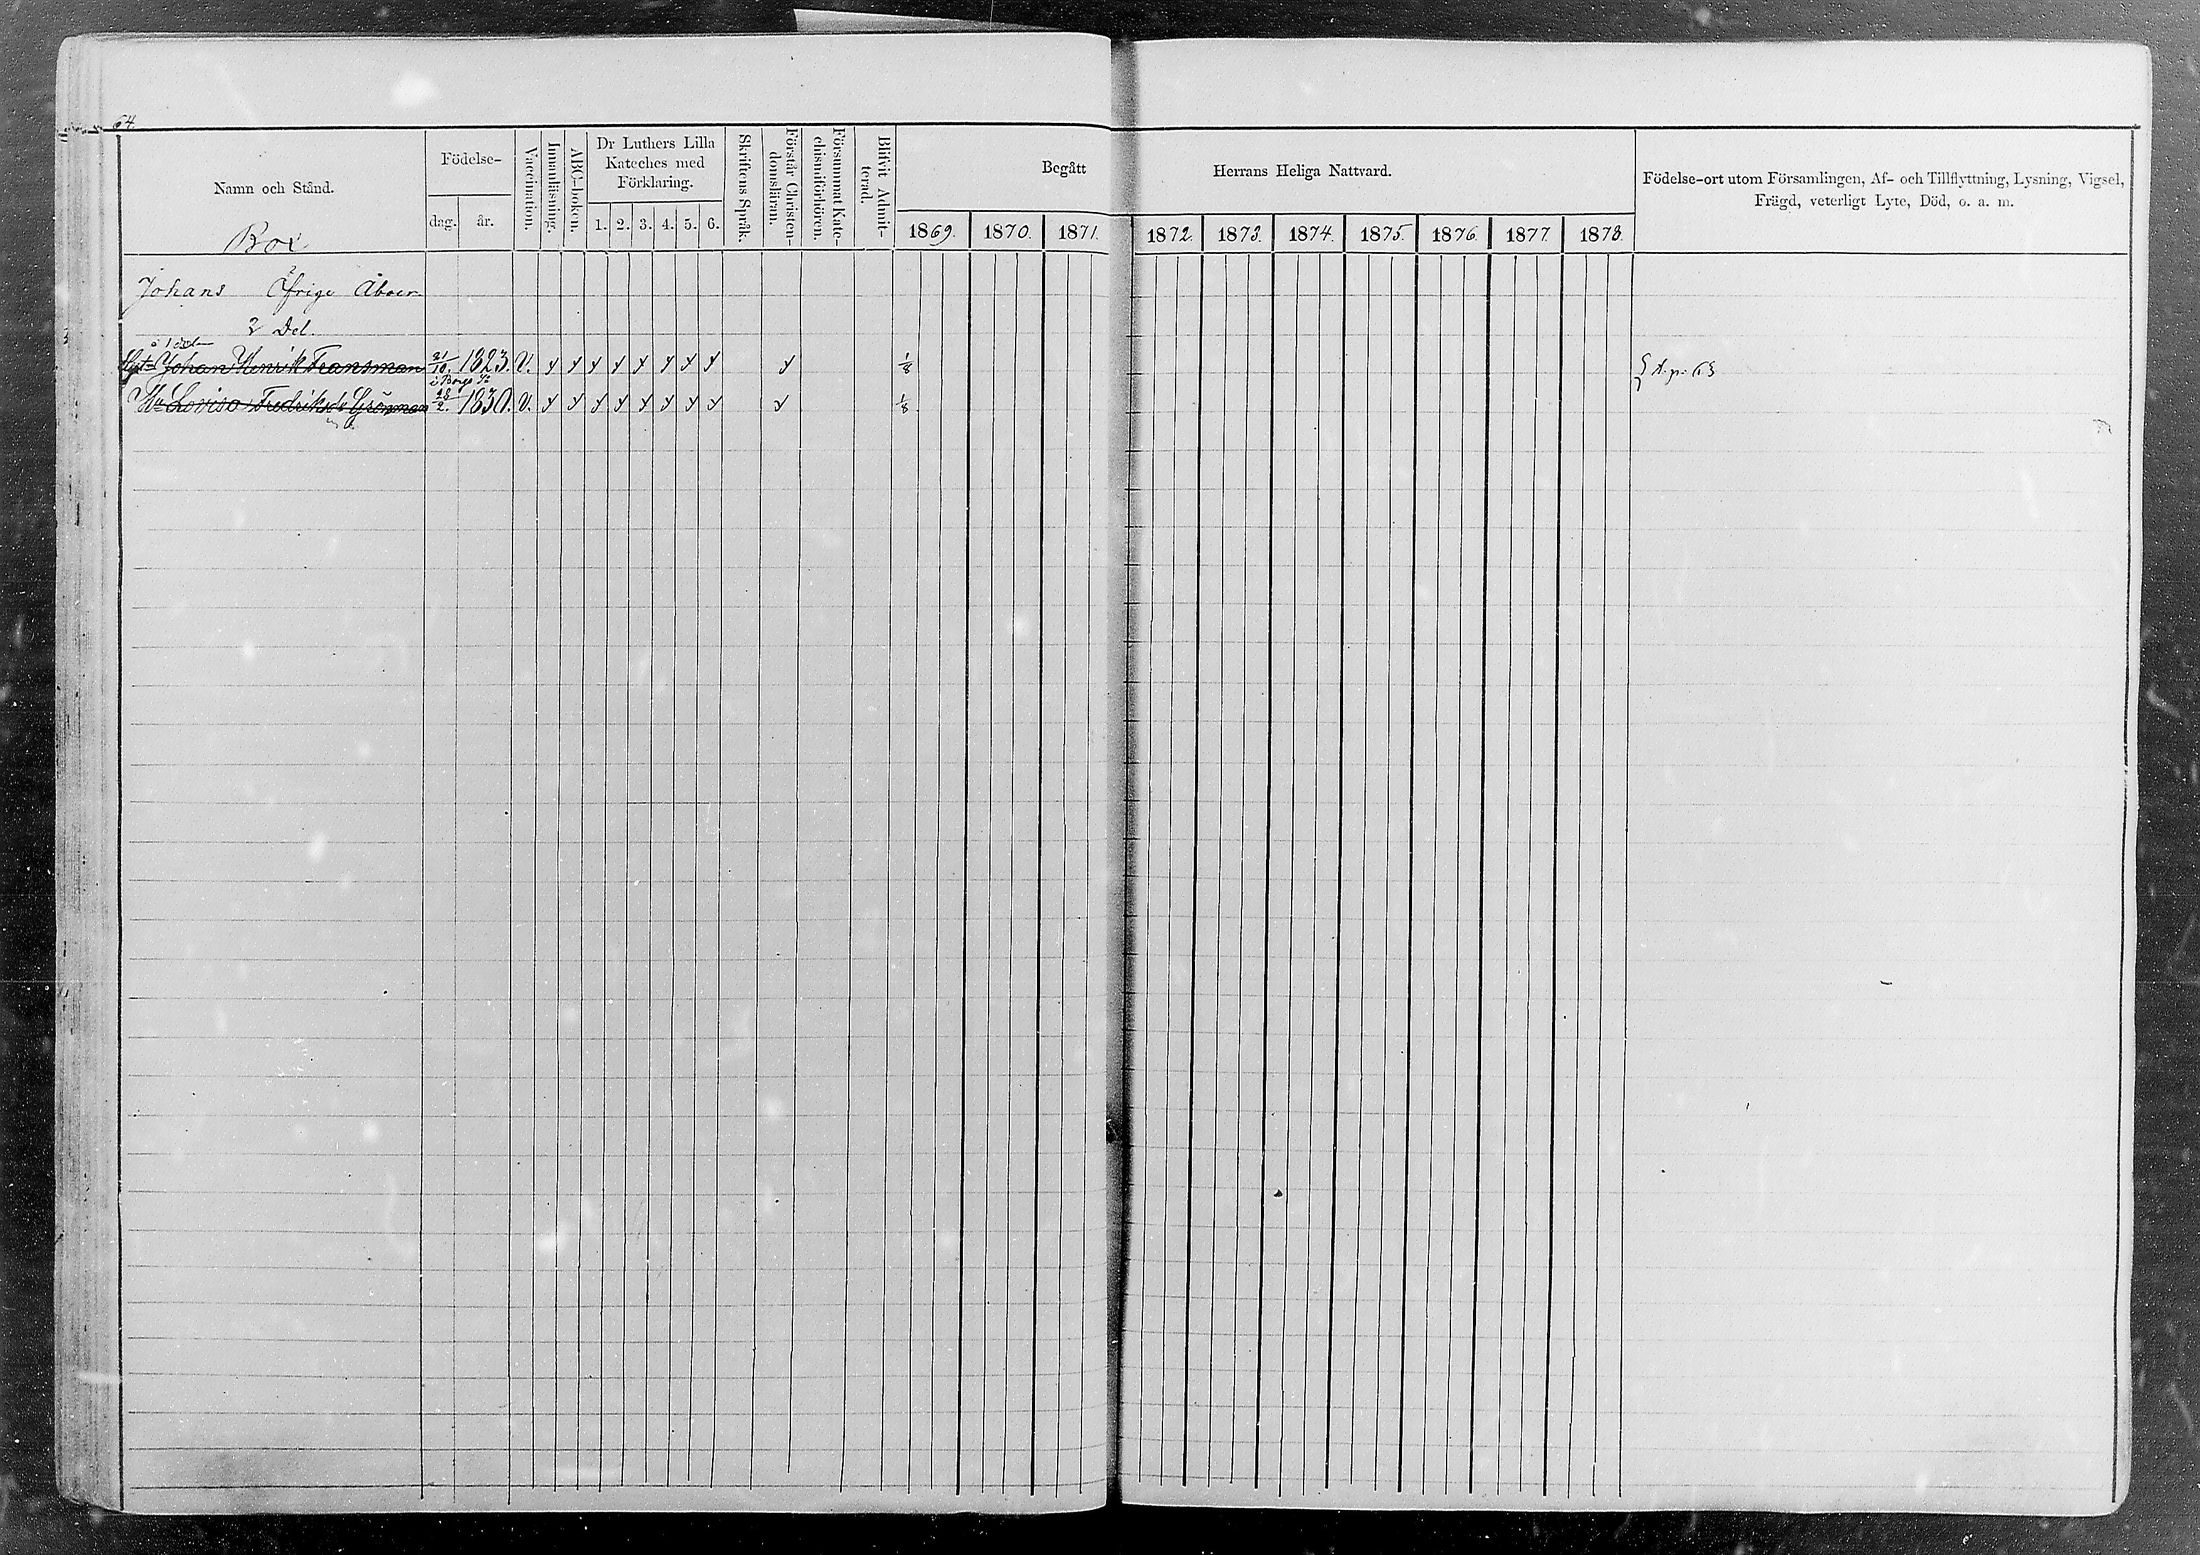 64.
Namn och Stånd.
Födelse-
dag.
år.
Vaccination.
Innanläsning.
ABC-boken.
Dr Luthers Lilla
Kateches med
Förklaring.
1. 2. 3. 4. 5. 6.
Skriftens Språk.
Förstår Christen-
domsläran.
Försummat Kate-
chismiförhören.
Blifvit Admit-
terad.
Begått Herrans Heliga Nattvard.
1869. 1870. 1871. 1872. 1873. 1874. 1875. 1876. 1877. 1878.
Födelse-ort utom Församlingen, Af- och Tillflyttning, Lysning, Vigsel,
Frägd, veterligt Lyte, Död, o. a. m.
Box
Johans Öfrige Åboer.
2 Del.
Johan Henrik Fransman 31/10. 1823. V. 1/8 t. p. 63
i Borgå
Lovisa Fredriksdr Grönman 28/2. 1830. V. 1/8